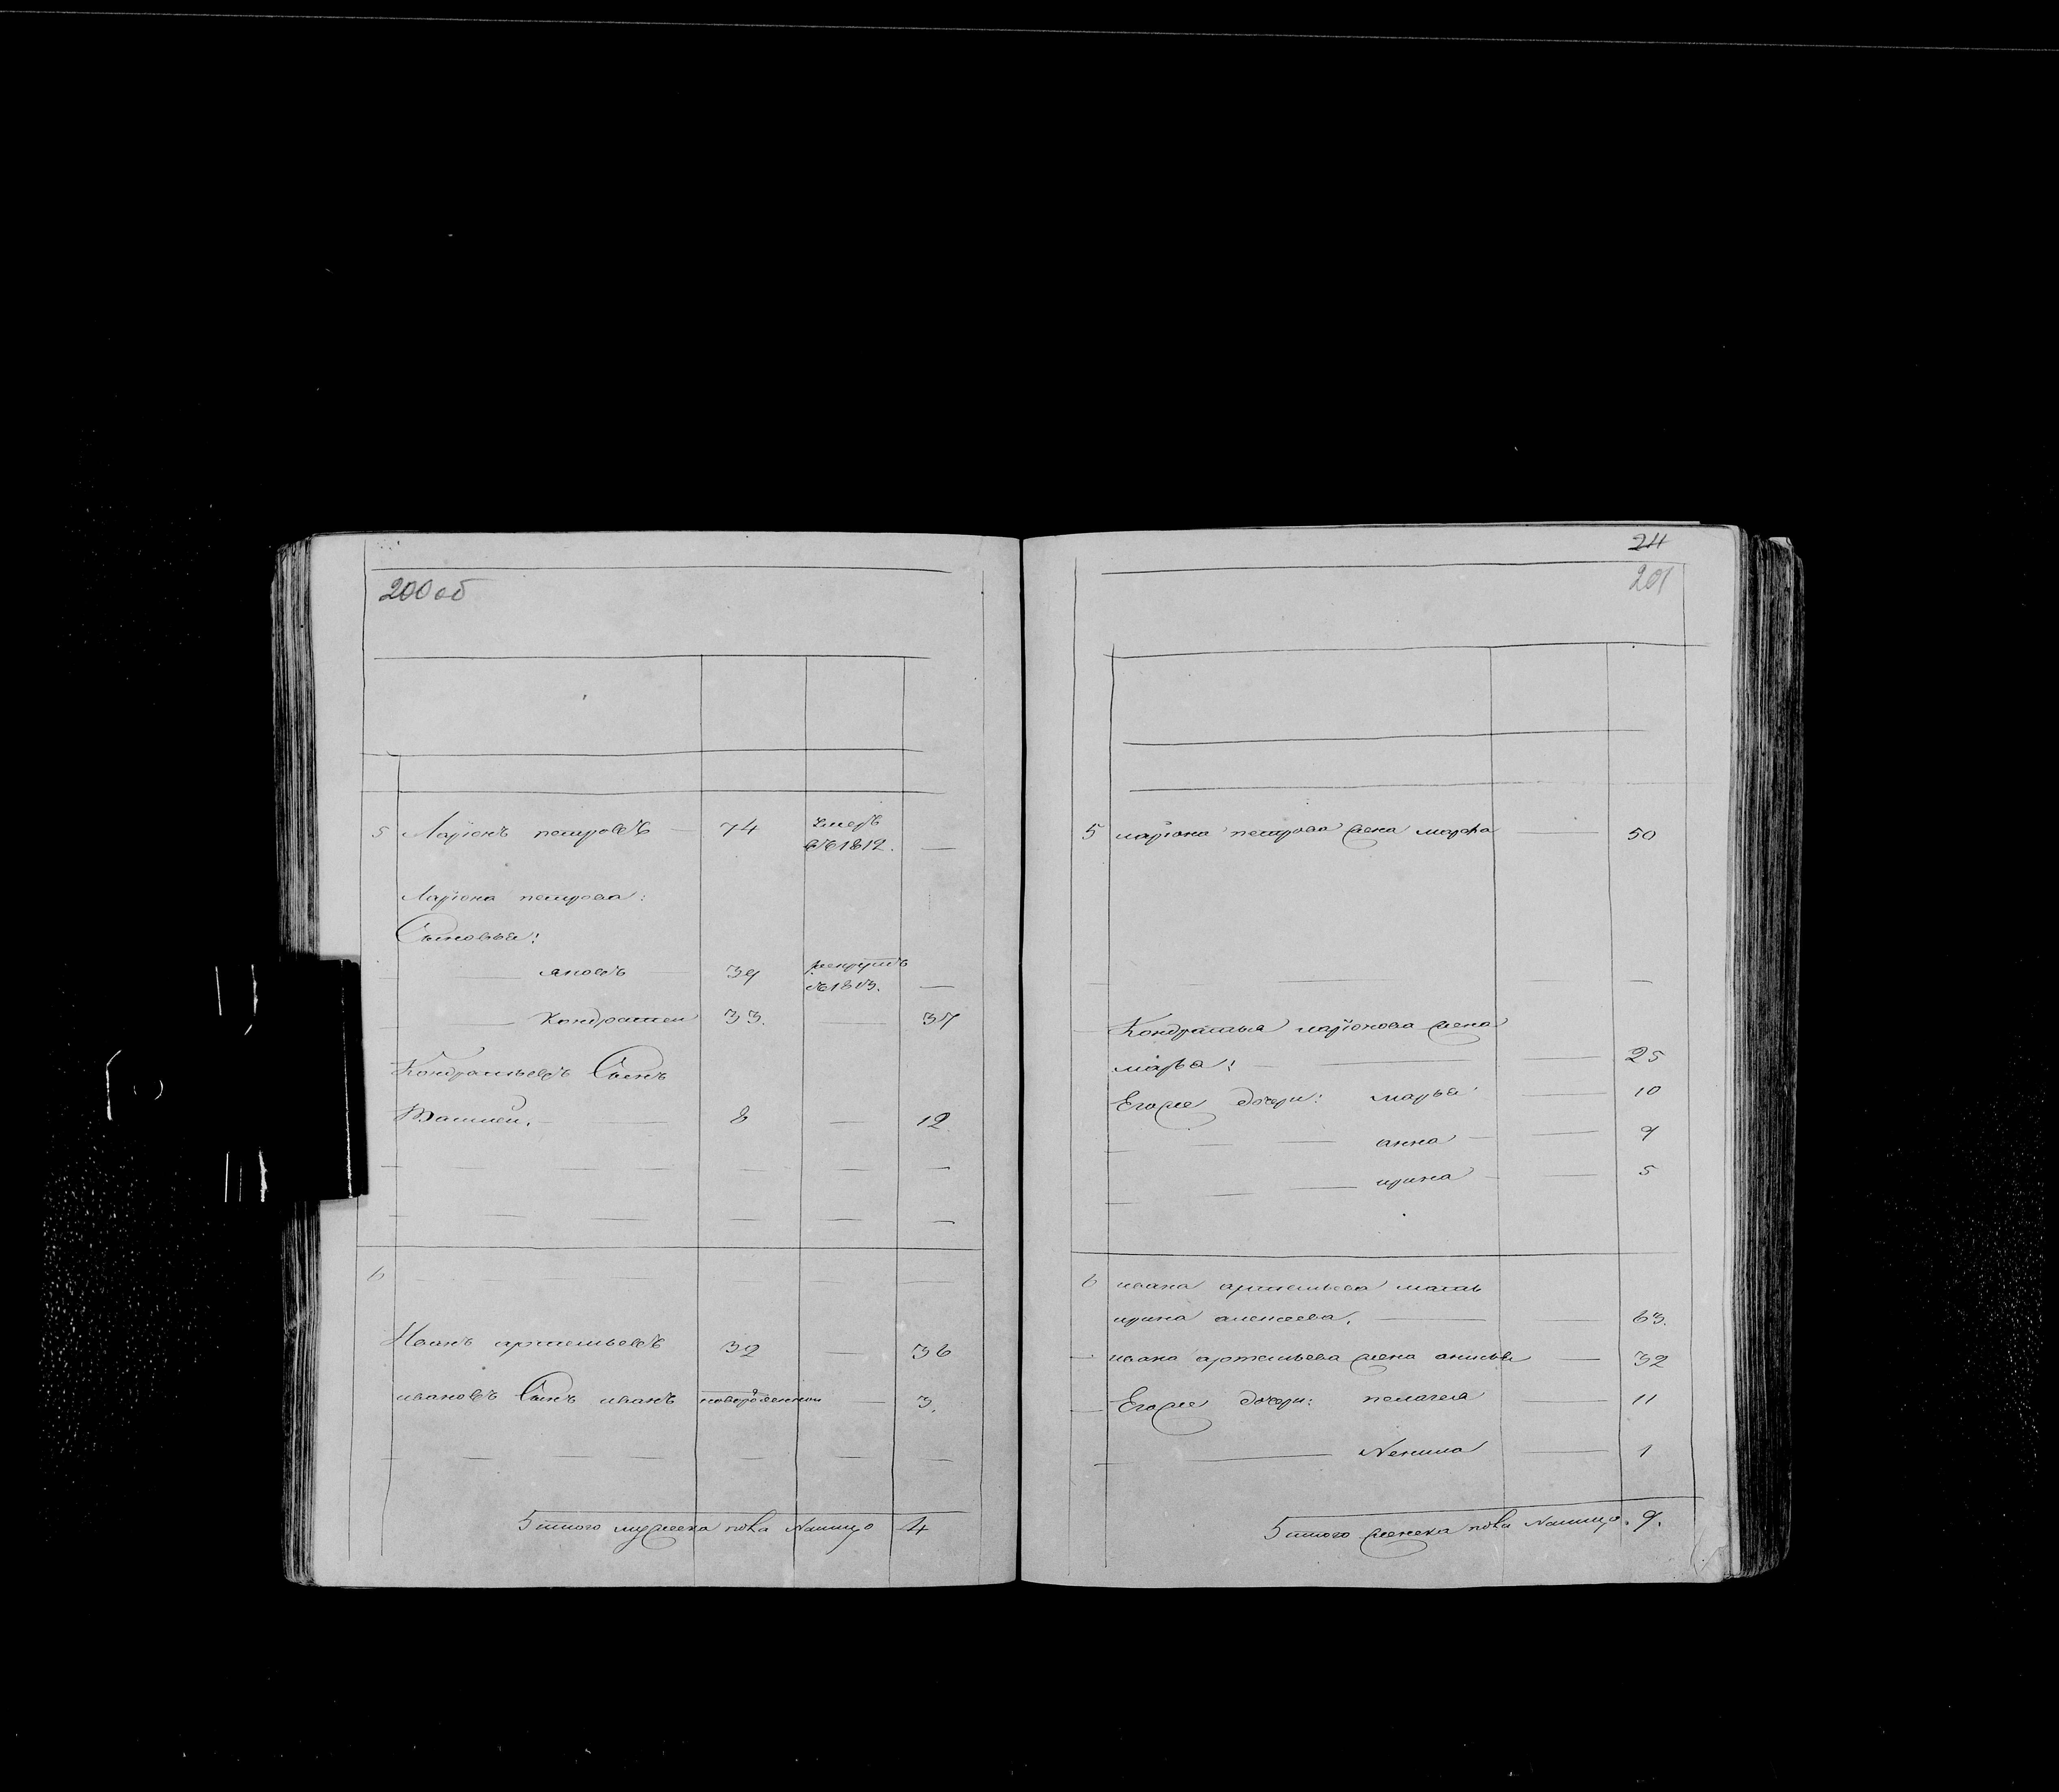 200 об
5 Ларионъ петровъ 74 умеръ
въ 1812. —
Лариона петрова:
Сыновья:
яковъ 39 рекрутъ
въ 1813. —
Кондратеи 33. — 37
Кондратьевъ Сынъ
8 — 12
6
Иванъ артемьевъ 32 — 36
ивановъ Сынъ иванъ новорожденнои — 3.
Итого мужеска пола налицо 4
24
201
5 лариона петрова жена марфа — 50
Кондратья ларионова жена
марья: — 25
Егоже дочери: марья — 10
анна — 9
ирина — 5
6 ивана артемьева мать
ирина алексеева. — 63.
ивана артемьева жена анисья — 32
Егоже дочери: пелагея — 11
— 1
Итого женска пола налицо. 9.